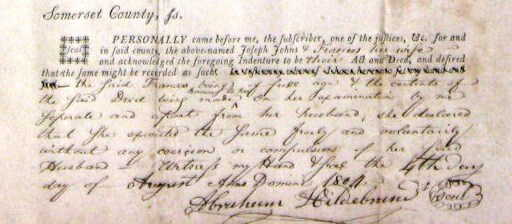 Somerset County, ſs.
PERSONALLY came before me, the ſubſcriber, one of the juſtices, &c. for and
Seal in ſaid county, the above-named Joseph Johns & Frances his wife
and acknowledged the foregoing Indenture to be their Act and Deed, and deſired
that the ſame might be recorded as ſuch.
the said Frances being of full age & the contents of
the said Deed being made known to her on her examination by me
separate and apart from her husband, she declared
that she executed the same freely and voluntarily
without any coercion or compulsion of her said
Husband Witness my Hand & Seal the 4th day
day of August Anno Domini 1804
Abraham Hildebrand Seal